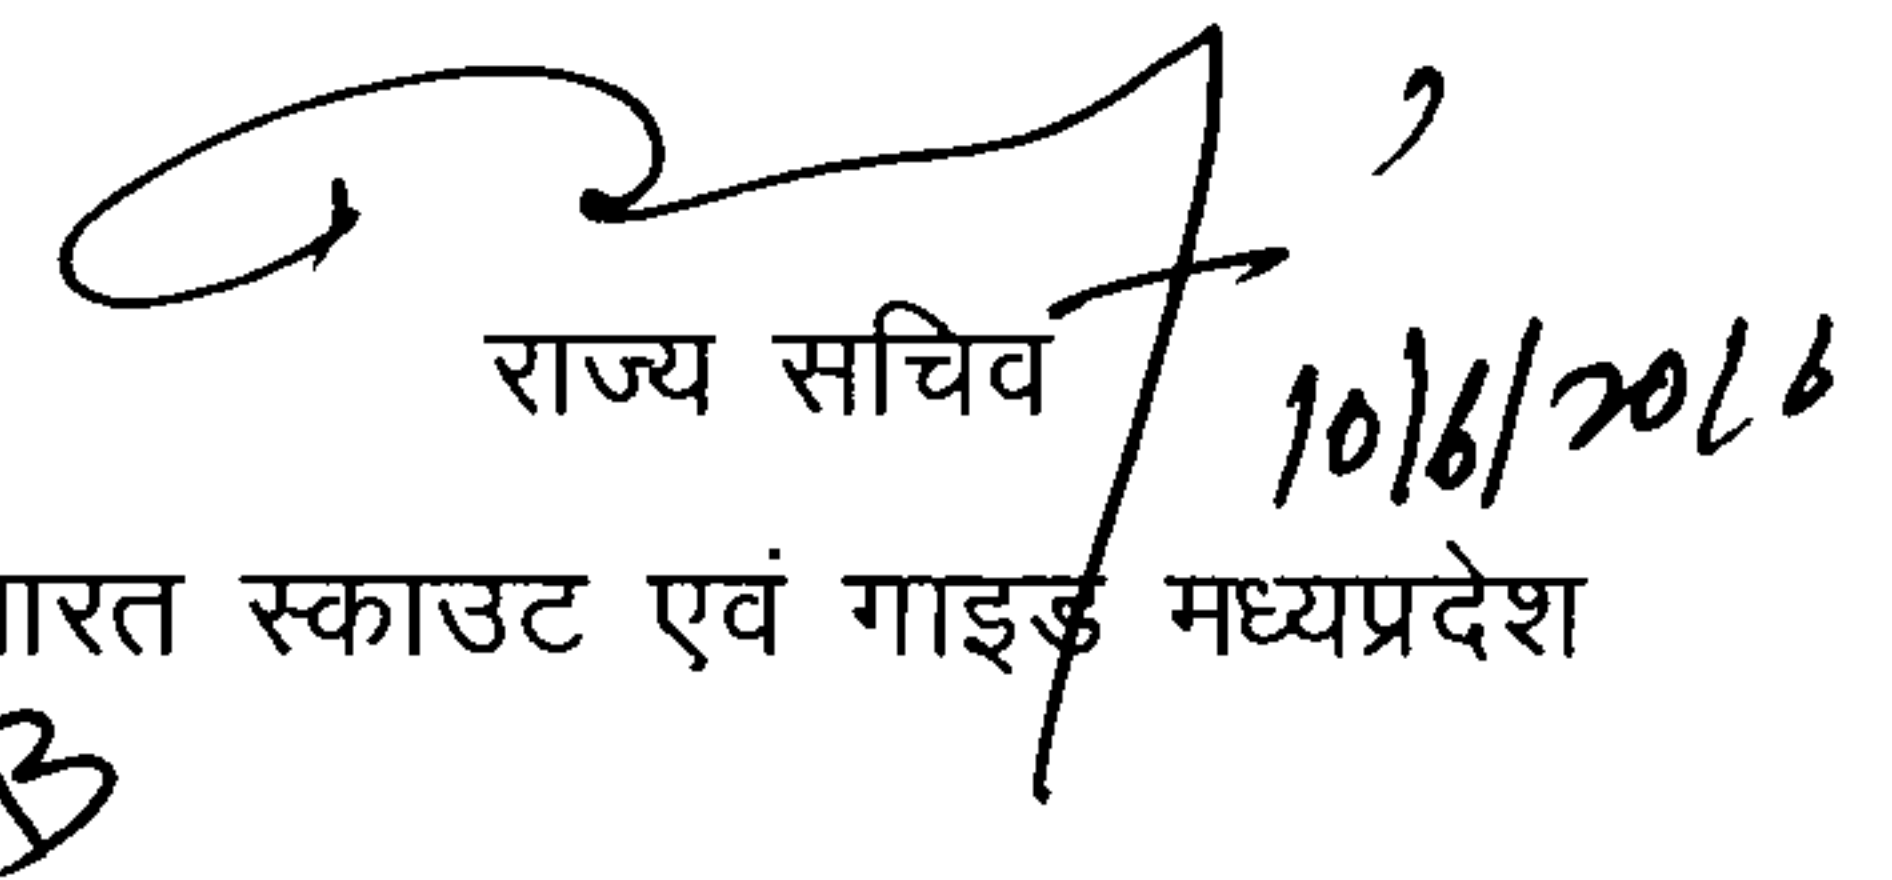 राज्य सचिव
10/6/2016
ारत स्काउट एवं गाइड मध्यप्रदेश